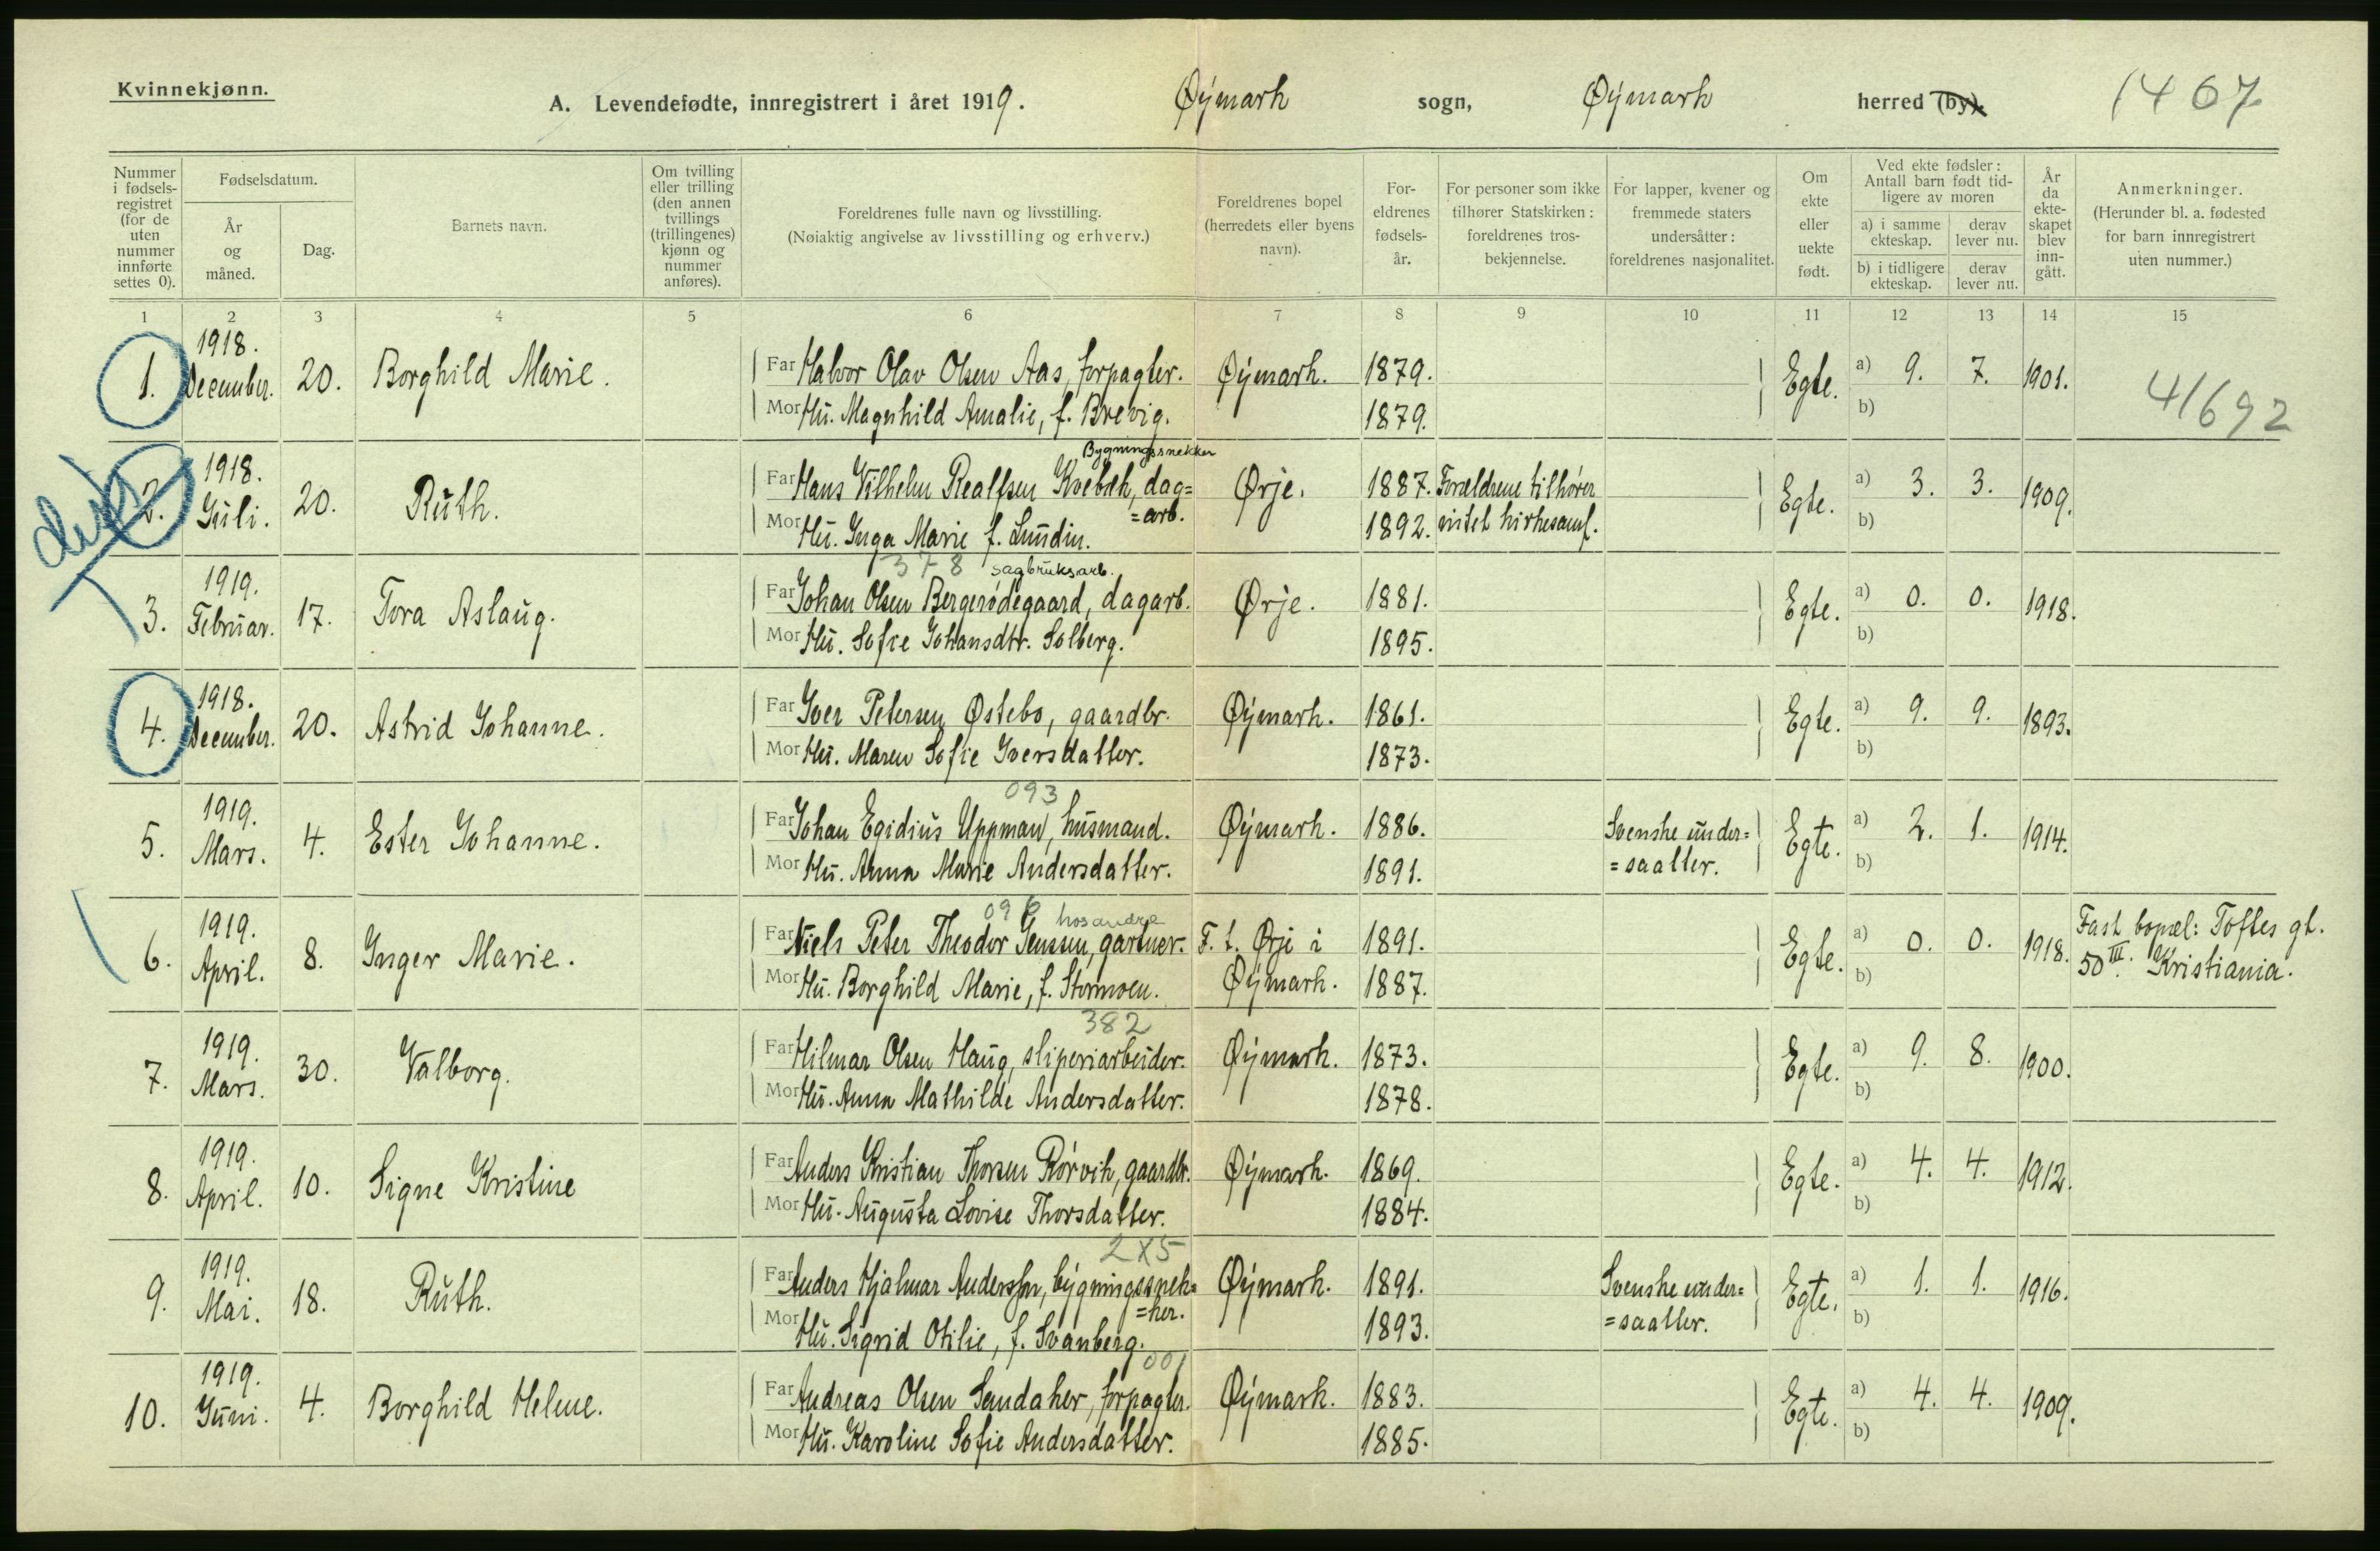 Kvinnekjønn.
A. Levendefødte, innregistrert i året 1919. Øymark sogn, Øymark herred (by). 1467
Nummer i fødsels-registret (for de uten nummer innførte settes 0).
Fødselsdatum.
År og måned.
Dag.
Barnets navn.
Om tvilling eller trilling (den annen tvillings (trillingenes) kjønn og nummer anføres).
Foreldrenes fulle navn og livsstilling.
(Nøiaktig angivelse av livsstilling og erhverv.)
Foreldrenes bopel (herredets eller byens navn).
For-eldrenes fødsels-år.
For personer som ikke tilhører Statskirken: foreldrenes tros-bekjennelse.
For lapper, kvener og fremmede staters undersåtter: foreldrenes nasjonalitet.
Om ekte eller uekte født.
Ved ekte fødsler: Antall barn født tid-ligere av moren
a) i samme ekteskap. derav lever nu.
b) i tidligere ekteskap. derav lever nu.
År da ekte-skapet blev inn-gått.
Anmerkninger.
(Herunder bl. a. fødested for barn innregistrert uten nummer.)
1 2 3 4 5 6 7 8 9 10 11 12 13 14 15
1. 1918. December. 20. Borghild Marie. Far Halvor Olav Olsen Aas, forpagter. Øymark. 1879. Egte. a) 9. 7. 1901.
Mor Hu. Magnhild Amalie, f. Brevig. 1879. b) 41692
Bygningssnekker
2. 1918. Juli. 20. Ruth. Far Hans Vilhelm Realfsen Kvebæk, dag= Ørje. 1887. Forældrene tilhører Egte. a) 3. 3. 1909.
=arb.
Mor Hu. Inga Marie f. Lundin. 1892. intet kirkesamf. b)
378 sagbruksarb.
3. 1919. Februar. 17. Tora Aslaug. Far Johan Olsen Bergerødegaard, dagarb. Ørje. 1881. Egte. a) 0. 0. 1918.
Mor Hu. Sofie Johansdtr. Solberg. 1895. b)
4. 1918. December. 20. Astrid Johanne. Far Iver Petersen Østebø, gaardbr. Øymark. 1861. Egte. a) 9. 9. 1893.
Mor Hu. Maren Sofie Iversdatter. 1873. b)
093
5. 1919. Mars. 4. Ester Johanne. Far Johan Egidius Uppman, husmand. Øymark. 1886. Svenske under= Egte. a) 2. 1. 1914.
Mor Hu. Anna Marie Andersdatter. 1891. =saatter. b)
096 hos andre
6. 1919. April. 8. Inger Marie. Far Niels Peter Theodor Jenssen, gartner. F. t. Ørje i 1891. Egte. a) 0. 0. 1918. Fast bopæl: Toftes gt.
Mor Hu. Borghild Marie, f. Stormoen. Øymark. 1887. b) 50 III. Kristiania.
382
7. 1919. Mars. 30. Valborg. Far Hilmar Olsen Haug, sliperiarbeider. Øymark. 1873. Egte. a) 9. 8. 1900.
Mor Hu. Anna Mathilde Andersdatter. 1878. b)
8. 1919. April. 10. Signe Kristine Far Anders Kristian Thorsen Rørvik, gaardbr. Øymark. 1869. Egte. a) 4. 4. 1912.
Mor Hu. Augusta Lovise Thorsdatter. 1884. b)
2X5
9. 1919. Mai. 18. Ruth. Far Anders Hjalmar Andersson, bygningssnek= Øymark. 1891. Svenske under= Egte. a) 1. 1. 1916.
=ker.
Mor Hu. Sigrid Otilie, f. Svanberg. 1893. =saatter. b)
001
10. 1919. Juni. 4. Borghild Helene. Far Andreas Olsen Sandaker, forpagter. Øymark. 1883. Egte. a) 4. 4. 1909.
Mor Hu. Karoline Sofie Andersdatter. 1885. b)